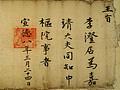 王旨
李澄石爲嘉
靖大夫同知中
樞院事者
宣德八年三月 四日